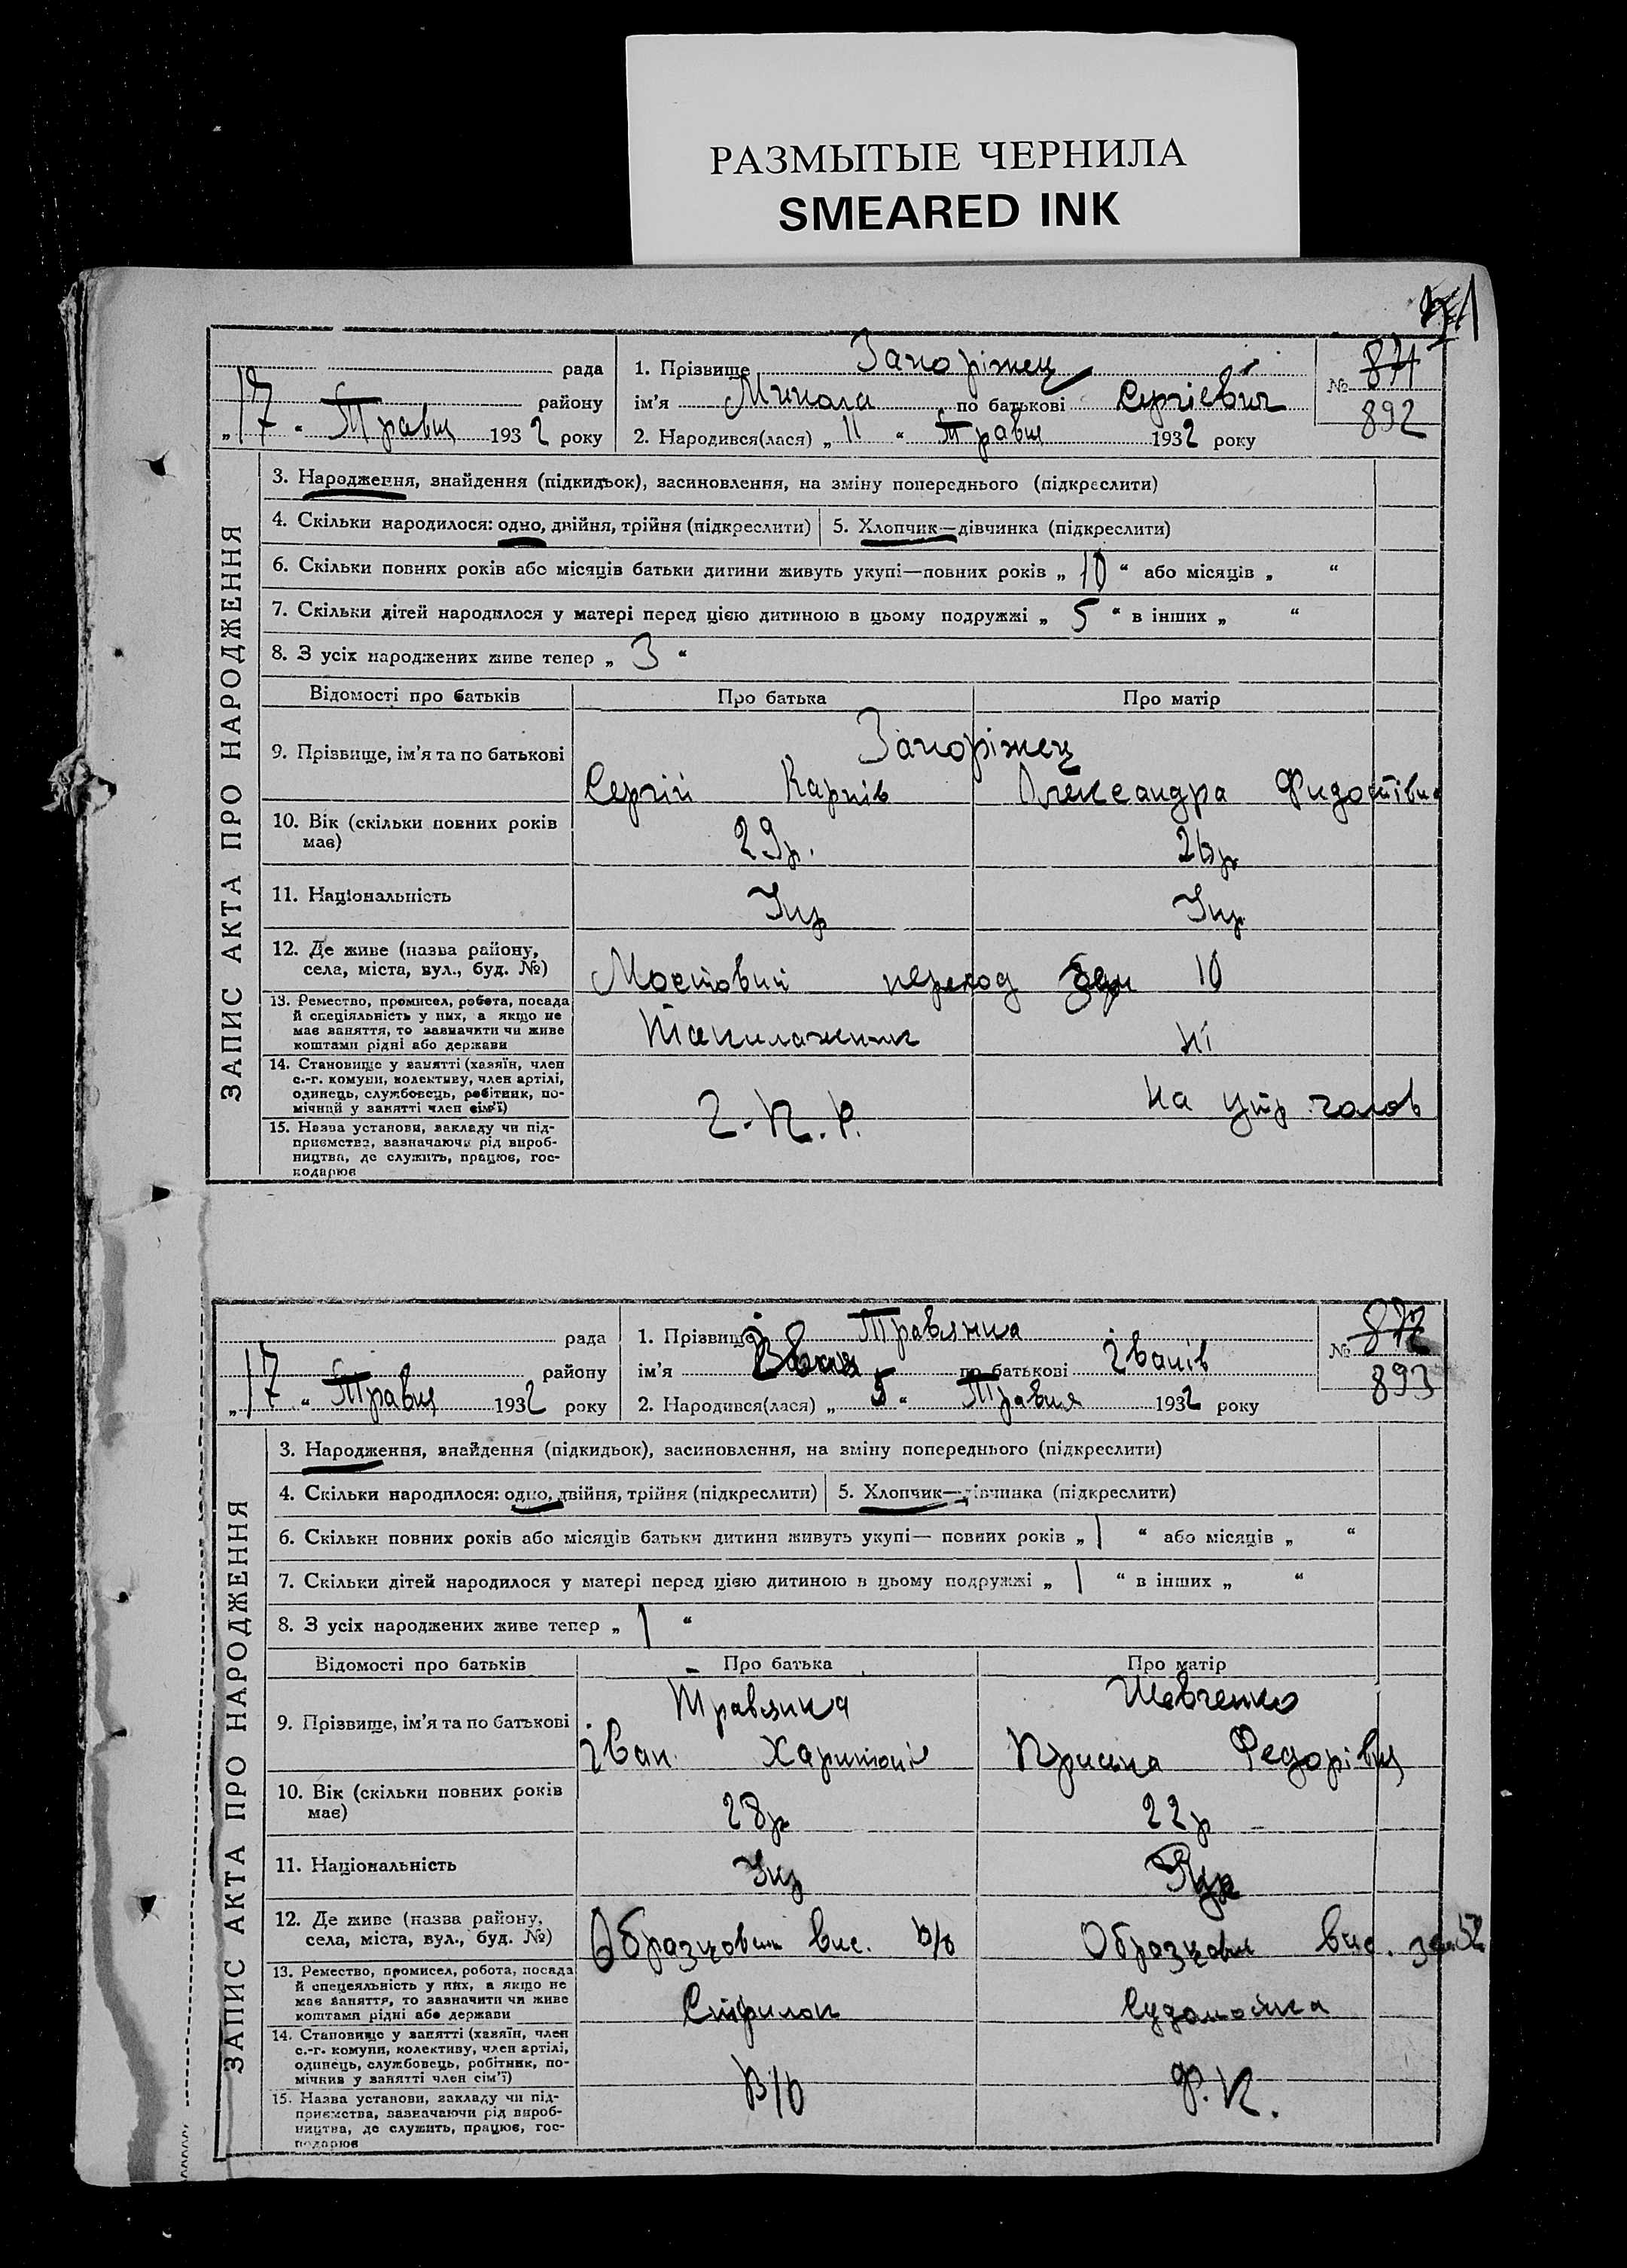 РАЗМЫТЫЕ ЧЕРНИЛА
SMEARED INK
рада
району
„17“ Травня 1932 року
1. Прізвище Запоріжець
ім’я Микола по батькові Сергієвич
2. Народився(лася) „11“ Травня 1932 року
№ 871
892
ЗАПИС АКТА ПРО НАРОДЖЕННЯ
3. Народження, знайдення (підкидьок), засиновлення, на зміну попереднього (підкреслити)
4. Скільки народилося: одно, двійня, трійня (підкреслити) 5. Хлопчик—дівчинка (підкреслити)
6. Скільки повних років або місяців батьки дитини живуть укупі—повних років „10“ або місяців „ “
7. Скільки дітей народилося у матері перед цією дитиною в цьому подружжі „5“ в інших „ “
8. З усіх народжених живе тепер „3“
Відомості про батьків Про батька Про матір
9. Прізвище, ім’я та по батькові
Запоріжець
Сергій Карпів Олександра
10. Вік (скільки повних років має)
29р. 26р
11. Національність
Укр Укр
12. Де живе (назва району, села, міста, вул., буд. №)
Мостовий переход 10
13. Ремество, промисел, робота, посада й спеціяльність у них, а якщо не має заняття, то зазначити чи живе коштами рідні або держави
ні
14. Становище у занятті (хазяїн, член с.-г. комуни, колективу, член артілі, одинець, службовець, робітник, помічний у занятті член сім’ї)
на утр. чолов
15. Назва установи, закладу чи підприємства, зазначаючи рід виробництва, де служить, працює, господарює
рада
району
„17“ Травня 1932 року
1. Прізвище Травянка
ім’я Іван по батькові Іванів
2. Народився(лася) „5“ Травня 1932 року
№ 872
893
ЗАПИС АКТА ПРО НАРОДЖЕННЯ
3. Народження, знайдення (підкидьок), засиновлення, на зміну попереднього (підкреслити)
4. Скільки народилося: одно, двійня, трійня (підкреслити) 5. Хлопчик—дівчинка (підкреслити)
6. Скільки повних років або місяців батьки дитини живуть укупі— повних років „1“ або місяців „ “
7. Скільки дітей народилося у матері перед цією дитиною в цьому подружжі „1“ в інших „ “
8. З усіх народжених живе тепер „1“
Відомості про батьків Про батька Про матір
9. Прізвище, ім’я та по батькові
Травянка Шевченко
Іван Харитонів Федорівна
10. Вік (скільки повних років має)
28р 22р
11. Національність
Укр Укр
12. Де живе (назва району, села, міста, вул., буд. №)
Образцовий вис. Образцовий вис. 52
13. Ремество, промисел, робота, посада й спецеяльність у них, а якщо не має заняття, то зазначити чи живе коштами рідні або держави
Судомойка
14. Становище у занятті (хазяїн, член с.-г. комуни, колективу, член артілі, одинець, службовець, робітник, помічник у занятті член сім’ї)
Ф.К.
15. Назва установи, закладу чи підприємства, зазначаючи рід виробництва, де служить, працює, господарює